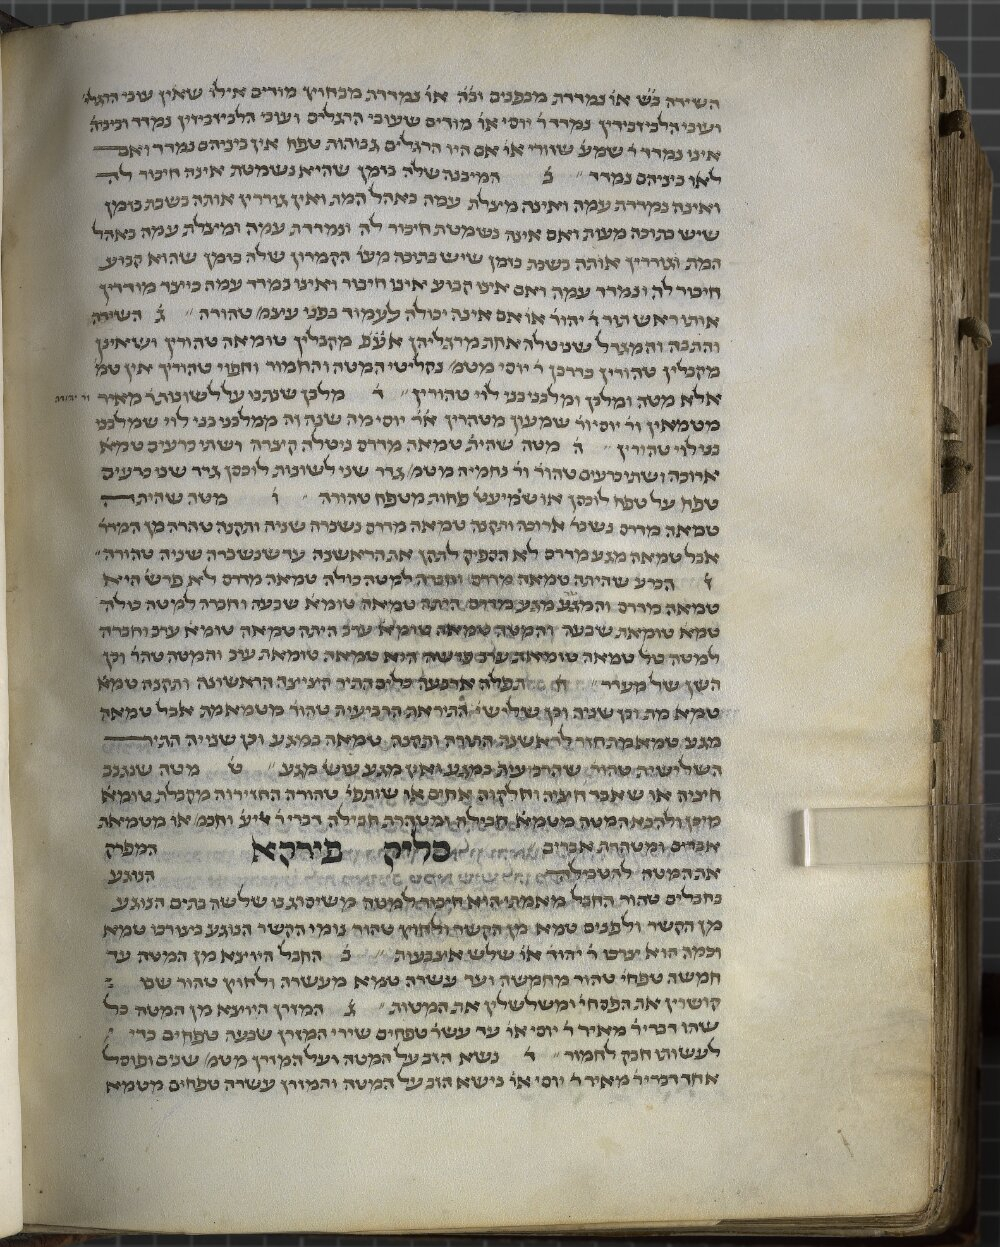 השידה בֿשֿ או̇ נמדדת מבפנים ובֿהֿ או̇ נמדדת מבחוץ מודים אילו שאין עובי הרגלי׳
ועובי הלבזבזין נמדד ר̇ יוסי או̇ מודים שעובי הרגלים ועובי הלבזבזין נמדד וביניה̇
אינו נמדד ר̇ שמע̇ שזורי או̇ אם היו הרגלים גבוהות טפח אין ביניהם נמדד ואם
לאו ביניהם נמדד ״ ב̇ המיכנה שלה בזמן שהיא נשמטת אינה חיבור לה
ואינה נמדדת עמה ואינה מיצלת עמה באהל המת ואין גוררין אותה בשבת בזמן
שיש בתוכה מעות ואם אינה נשמטת חיבור לה ונמדדת עמה ומיצלת עמה באהל
המת וגוררין אותה בשבת בזמן שיש בתוכה מעו̇ הקמרון שלה בזמן שהוא קבוע
חיבור לה ונמדד עמה ואם אינו קבוע אינו חיבור ואינו נמדד עמה כיצד מודדין
אותו ראש תור ר̇ יהוד̇ או̇ אם אינה יכולה לעמוד בפני עצמ̇ טהורה ״ ג̇ השידה
והתבה והמגדל שניטלה אחת מרגליהן אעֿפֿ מקבלין טומאה טהורין ושאינן
מקבלין טהורין כדרכן ר̇ יוסי מטמ̇ נקליטי המטה והחמור וחפוי טהורין אין טמ̇
אלא מטה ומלבן ומלבני בני לוי טהורין ״ ד̇ מלבן שנתנו על לשונות ר̇ מאיר
ור̇ יהודה
מטמאין ור̇ יוסי ור̇ שמעון מטהרין א̇ר̇ יוסי מה שנה זה ממלבני בני לוי שמלבני
בני לוי טהורין ״ ה̇ מטה שהית̇ טמאה מדרס ניטלה קיצרה ושתי כרעים טמא̇
ארוכה ושתי כרעים טהור̇ ור̇ נחמיה מטמ̇ גדד שני לשונות לוכסן גדד שני כרעים
טפח על טפח לוכסן או שמיעט̇ פחות מטפח טהורה ״ ו̇ מטה שהיתה
טמאה מדרס נשבר̇ ארוכה ותקנה טמאה מדרס נשברה שניה ותקנה טהרה מן המדר̇
אבל טמאה מגע מדרס לא הספיק לתקן את הראשנה עד שנשברה שניה טהורה ״
ז̇ הכרע שהיתה טמאה מדרס וחברה למטה כולה טמאה מדרס לא פרש̇ היא
טמאה מדרס והמטה מגע מדרס היתה טמאה טומא̇ שבעה וחברה למטה כולה
טמא טומאת שבעה והמטה טמאה טומא̇ ערב היתה טמאה טומא̇ ערב וחברה
למטה כול̇ טמאה טומאת ערב פרשה היא טמאה טומאת ערב והמטה טהר̇ וכן
השן של מעדר ״ ח̇ תפלה ארבעה כלים התיר הקציצה הראשונה ותקנה טמא̇
טמא מת וכן שניה וכן שלישי̇ התיר את הרביעית טהור̇ מטמא מת אבל טמאה
מגע טמא מת חזר לראשנה התירה ותקנה טמאה במגע וכן שנייה התיר
השלישית טהור̇ שהרביעית במגע ואין מגע עוש̇ מגע ״ ט̇ מטה שנגנב
חיציה או שאבד חיציה וחלקוה אחים או שותפי̇ טהורה החזירוה מקבלת טומא̇
מיכן ולהבא המטה מטמא̇ חבילה ומטהרת חבילה דברי ר̇ ליע̇ וחכמ̇ או̇ מטמיאה
אברים ומטהרת אברים סליק פירקא המפרק
את המטה להטבילה הנוגע
בחבלים טהור החבל מאמתי הוא חיבור למטה משיסרג בו שלשה בתים הנוגע
מן הקשר ולפנים טמא מן הקשר ולחוץ טהור נומי הקשר הנוגע בצורכו טמא
וכמה הוא צרכו ר̇ יהוד̇ או̇ שלש אצבעות ״ ב̇ החבל היוצא מן המטה עד
חמשה טפחי̇ טהור מחמשה ועד עשרה טמא מעשרה ולחוץ טהור שבו
קושרין את הפסחי̇ ומשלשלין את המטות ״ ג̇ המזרן היוצא מן המטה כל
שהו דברי ר̇ מאיר ר̇ יוסי או̇ עד עשר̇ טפחים שירי המזרן שבעה טפחים כדי
לעשותו חבק לחמור ״ ד̇ נשא הזב על המטה ועל המזרן מטמ̇ שנים ופוסל
אחד דברי ר̇ מאיר ר̇ יוסי או̇ נישא הזב על המטה והמזרן עשרה טפחים מטמא